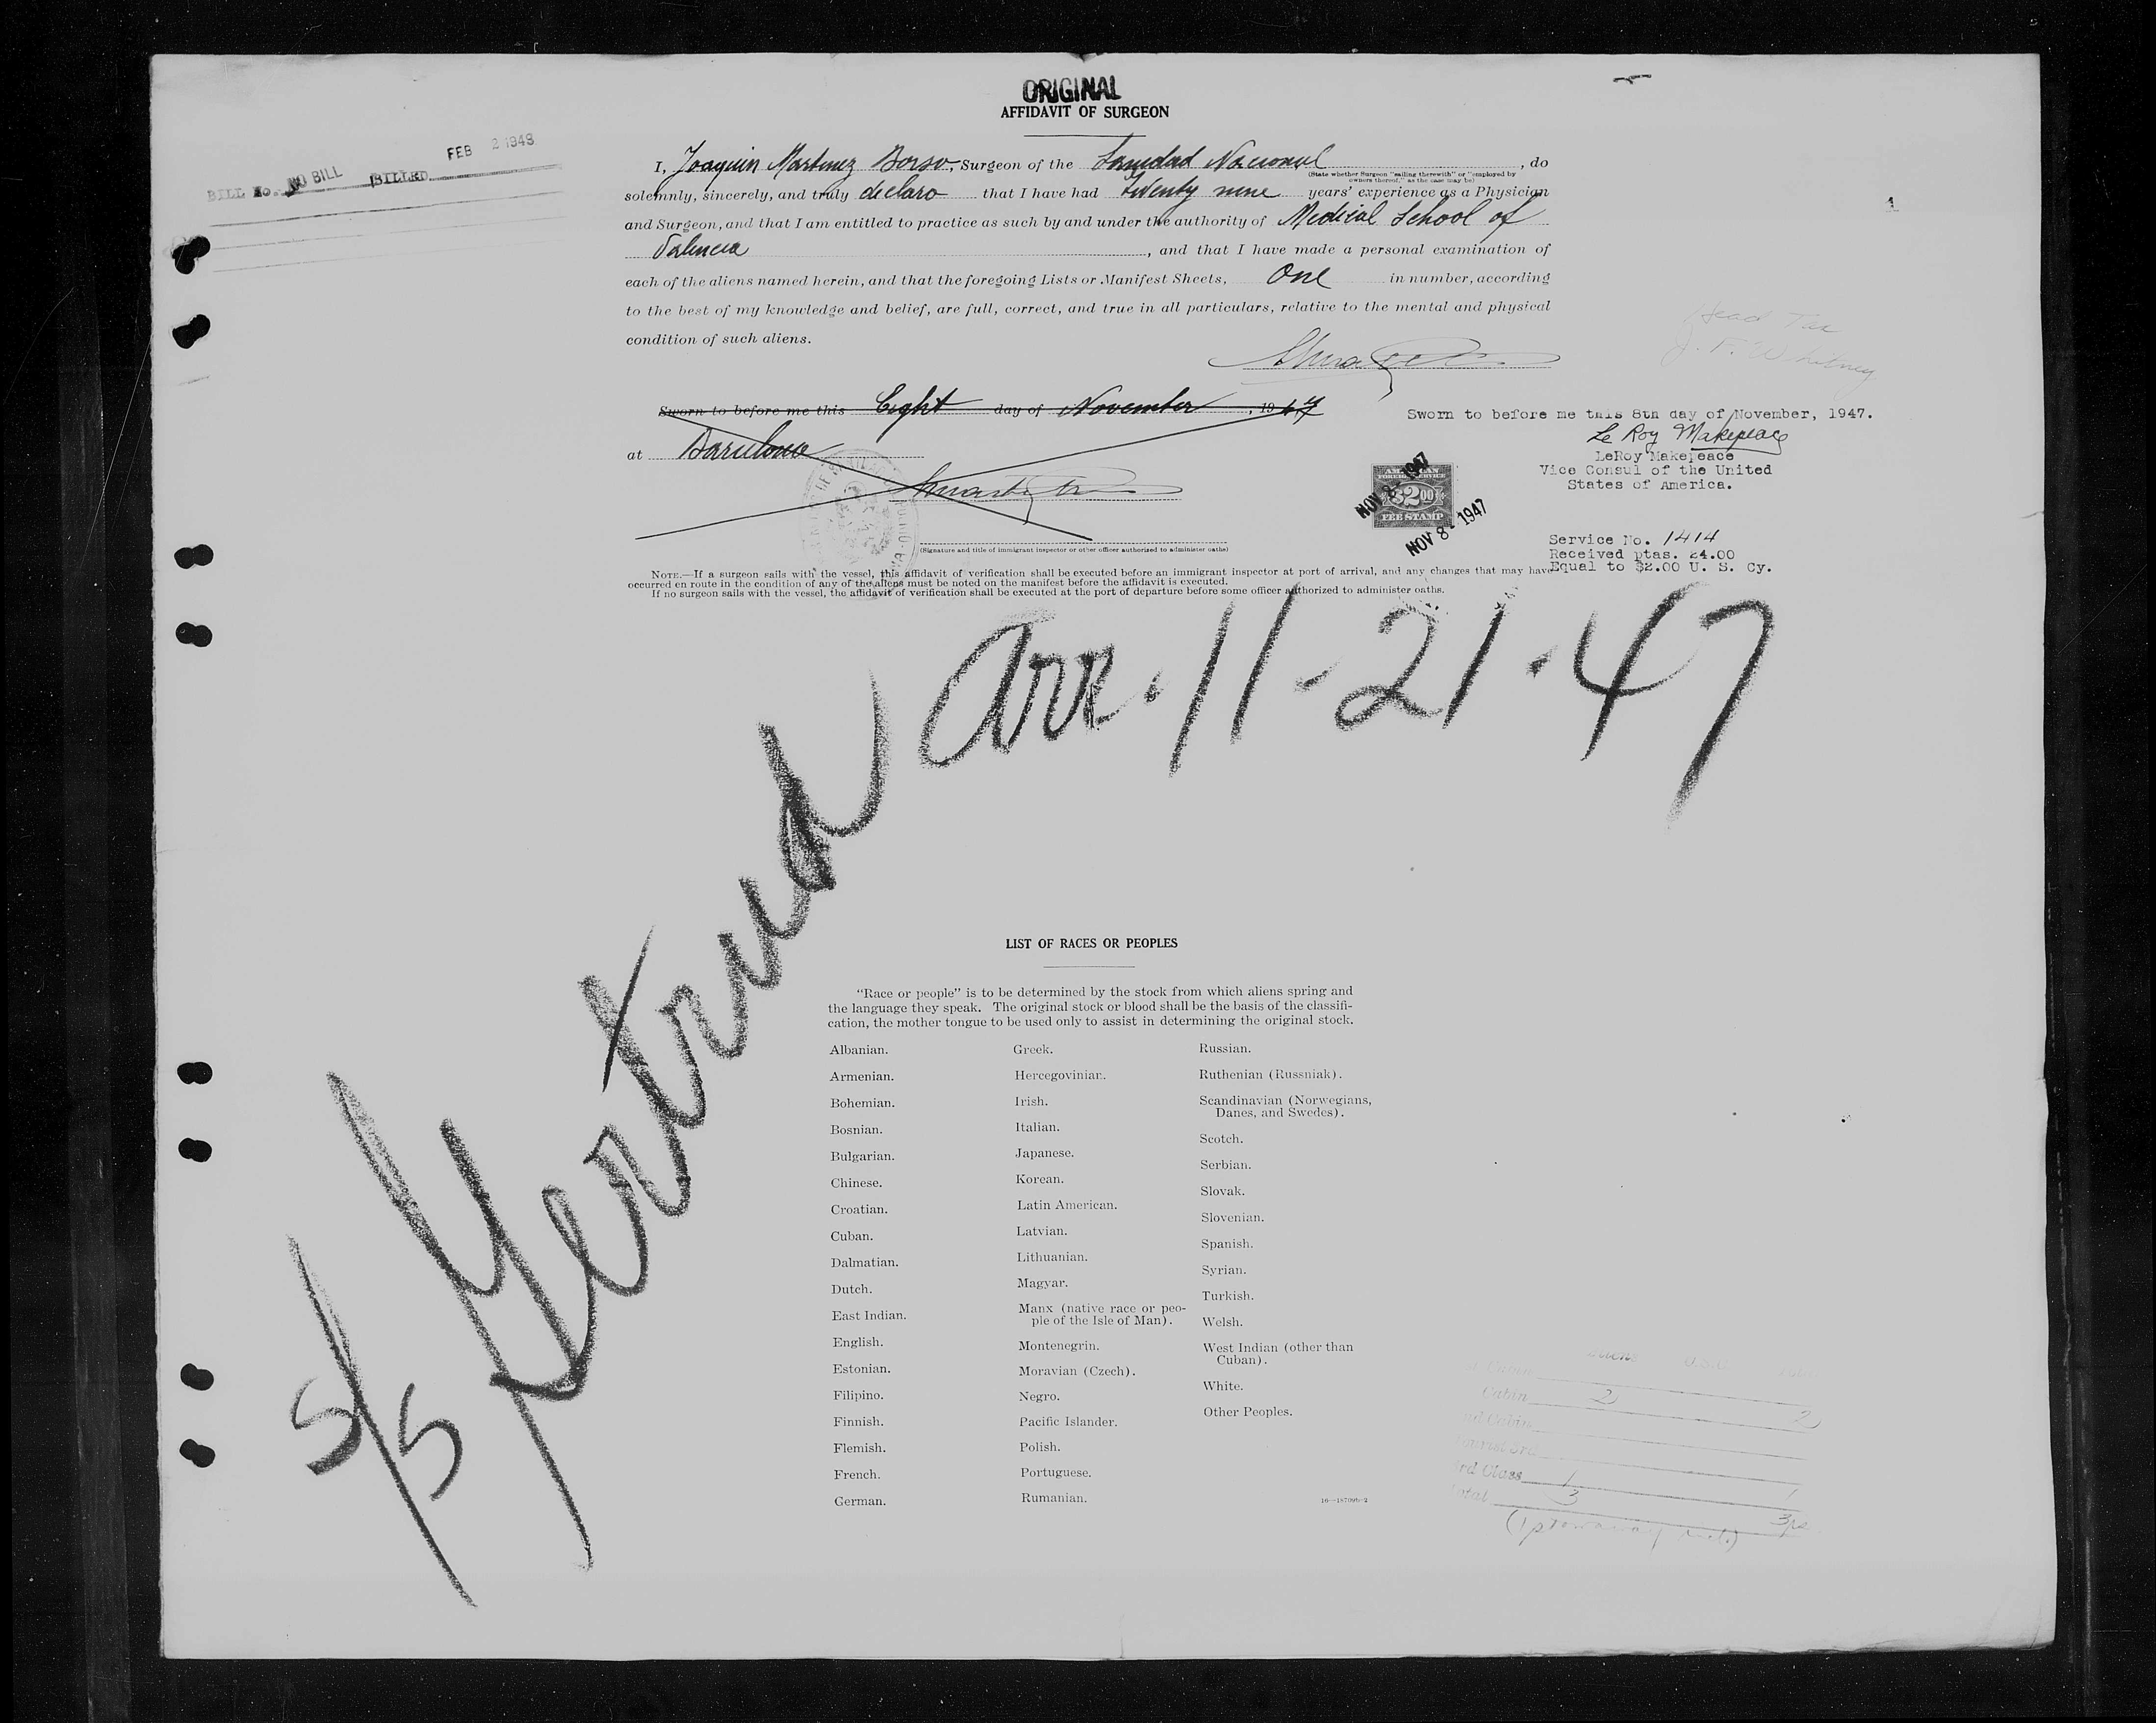 ORIGINAL
AFFIDAVIT OF SURGEON
FEB 2 1948
BILL No. NO BILL BILLED
I, Joaquin Martinez Borso, Surgeon of the Sanidad Nacional, do
(State whether Surgeon "sailing therewith" or "employed by
owners thereof," as the case may be)
solemnly, sincerely, and truly declaro that I have had twenty nine years' experience as a Physician
and Surgeon, and that I am entitled to practice as such by and under the authority of Medical School of
Valencia, and that I have made a personal examination of
each of the aliens named herein, and that the foregoing Lists or Manifest Sheets, One in number, according
to the best of my knowledge and belief, are full, correct, and true in all particulars, relative to the mental and physical
condition of such aliens.
Head Tax
J. F. Whitney
Sworn to before me this Eight day of November, 1947
at Barcelona
Sworn to before me this 8th day of November, 1947.
Le Roy Makepeace
LeRoy Makepeace
Vice Consul of the United
States of America.
NOV 8 - 1947
AMERICAN
FOREIGN SERVICE
$2.00
FEE STAMP
NOV 8 - 1947
Service No. 1414
Received ptas. 24.00
Equal to $2.00 U. S. Cy.
(Signature and title of immigrant inspector or other officer authorized to administer oaths)
NOTE.—If a surgeon sails with the vessel, this affidavit of verification shall be executed before an immigrant inspector at port of arrival, and any changes that may have
occurred en route in the condition of any of the aliens must be noted on the manifest before the affidavit is executed.
If no surgeon sails with the vessel, the affidavit of verification shall be executed at the port of departure before some officer authorized to administer oaths.
Arr. 11-21-47
S/S Gertrud
LIST OF RACES OR PEOPLES
"Race or people" is to be determined by the stock from which aliens spring and
the language they speak. The original stock or blood shall be the basis of the classifi-
cation, the mother tongue to be used only to assist in determining the original stock.
Albanian.
Armenian.
Bohemian.
Bosnian.
Bulgarian.
Chinese.
Croatian.
Cuban.
Dalmatian.
Dutch.
East Indian.
English.
Estonian.
Filipino.
Finnish.
Flemish.
French.
German.
Greek.
Hercegovinian.
Irish.
Italian.
Japanese.
Korean.
Latin American.
Latvian.
Lithuanian.
Magyar.
Manx (native race or peo-
ple of the Isle of Man).
Montenegrin.
Moravian (Czech).
Negro.
Pacific Islander.
Polish.
Portuguese.
Rumanian.
Russian.
Ruthenian (Russniak).
Scandinavian (Norwegians,
Danes, and Swedes).
Scotch.
Serbian.
Slovak.
Slovenian.
Spanish.
Syrian.
Turkish.
Welsh.
West Indian (other than
Cuban).
White.
Other Peoples.
16—18709b-2
Aliens U.S.C.
Cabin
Cabin 2 2
Cabin
3rd Class 1 1
Total 3 3